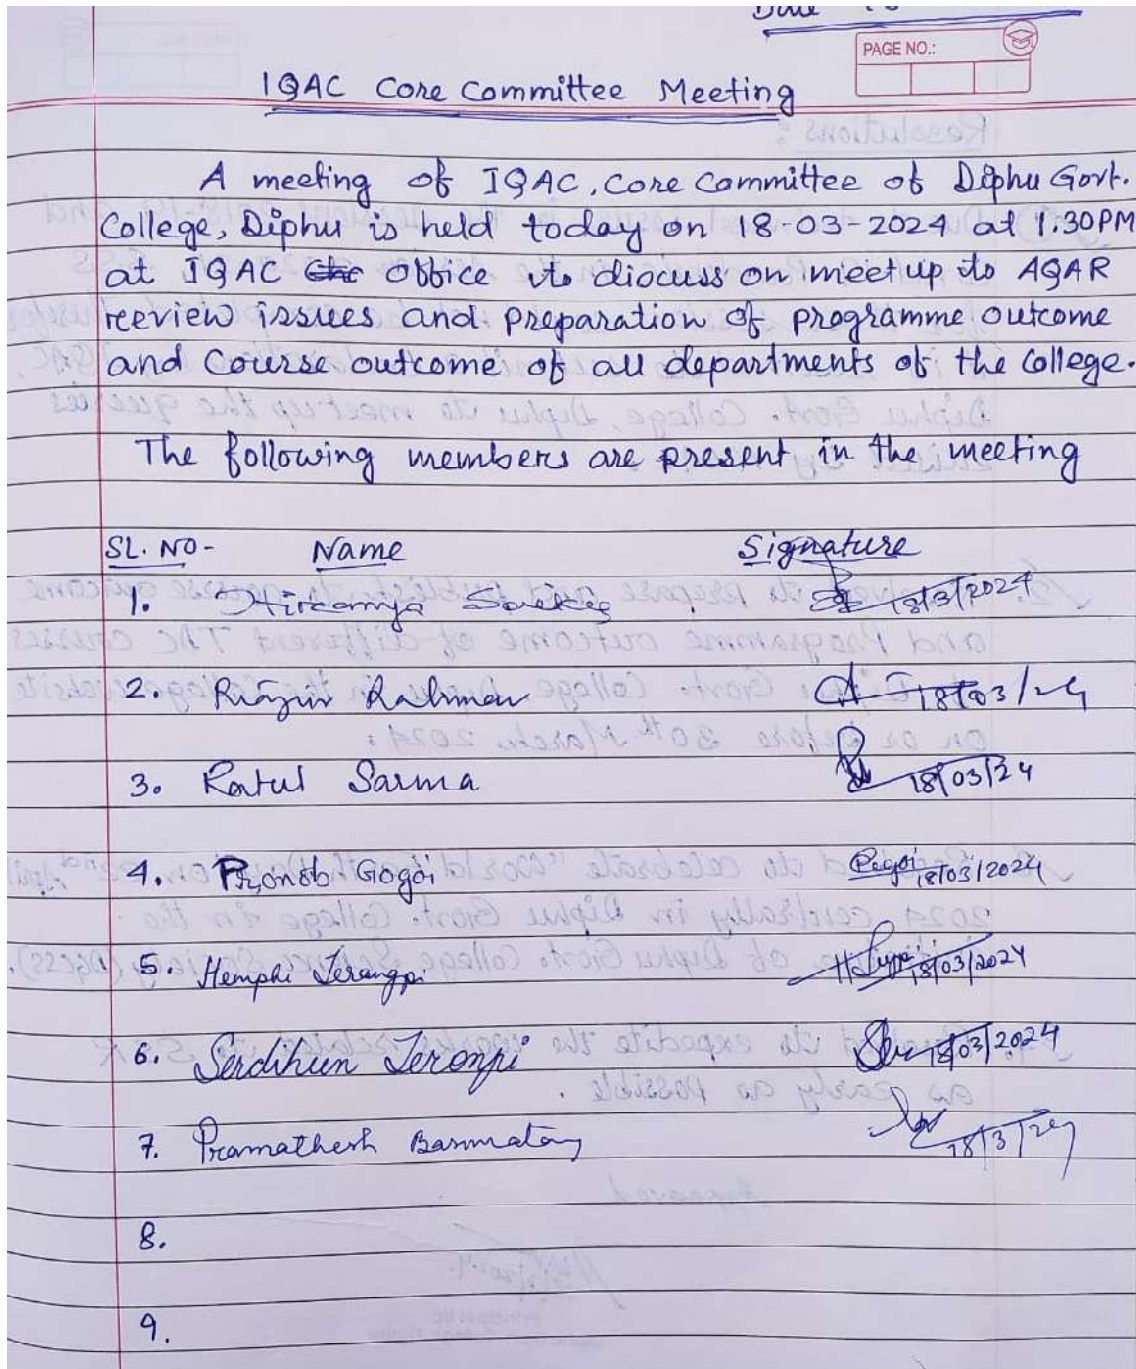 Date
PAGE NO.:
IQAC Core Committee Meeting
A meeting of IQAC, Core Committee of Diphu Govt.
College, Diphu is held today on 18-03-2024 at 1.30PM
at IQAC office to discuss on meetup to AQAR
reeview issues and preparation of programme outcome
and Course outcome of all departments of the College.
The following members are present in the meeting
SL. NO- Name Signature
1. 18/3/2024
2. Rahman 18/03/24
3. Ratul Sarma 18/03/24
4. Pronob Gogoi Pogoi 18/03/2024
5. Hemphi Terangpi 18/03/2024
6. Serdihun Teronpi 18/03/2024
7. Pramathesh 18/3/24
8.
9.